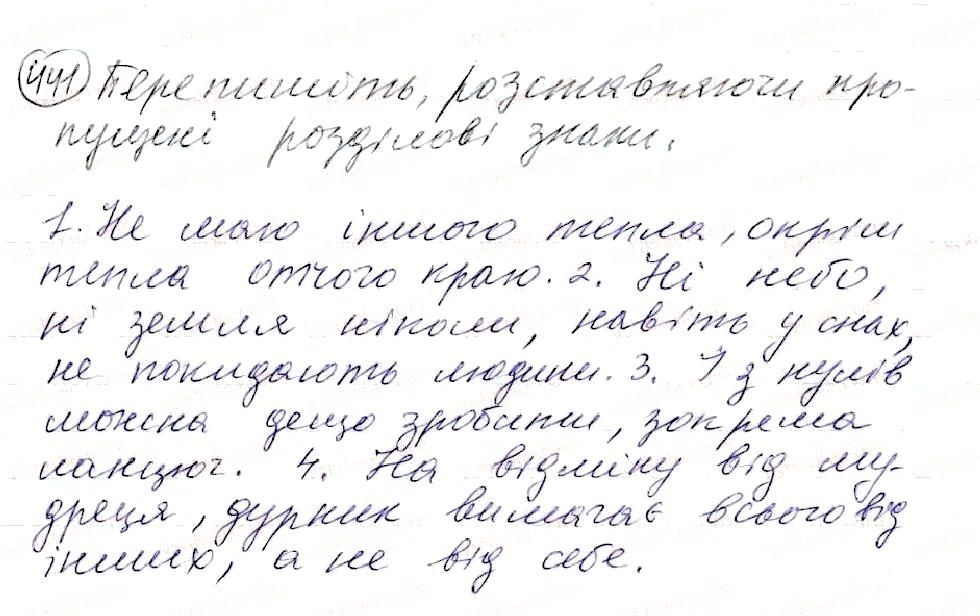 441 Перепишіть, розставляючи про-
пущені розділові знаки.
1. Не маю іншого тепла, окрім
тепла отчого краю. 2. Ні небо,
ні земля ніколи, навіть у снах,
не покидають людини. 3. І з нулів
можна дещо зробити, зокрема
ланцюг. 4. На відміну від му-
дреця, дурник вимагає всього від
інших, а не від себе.